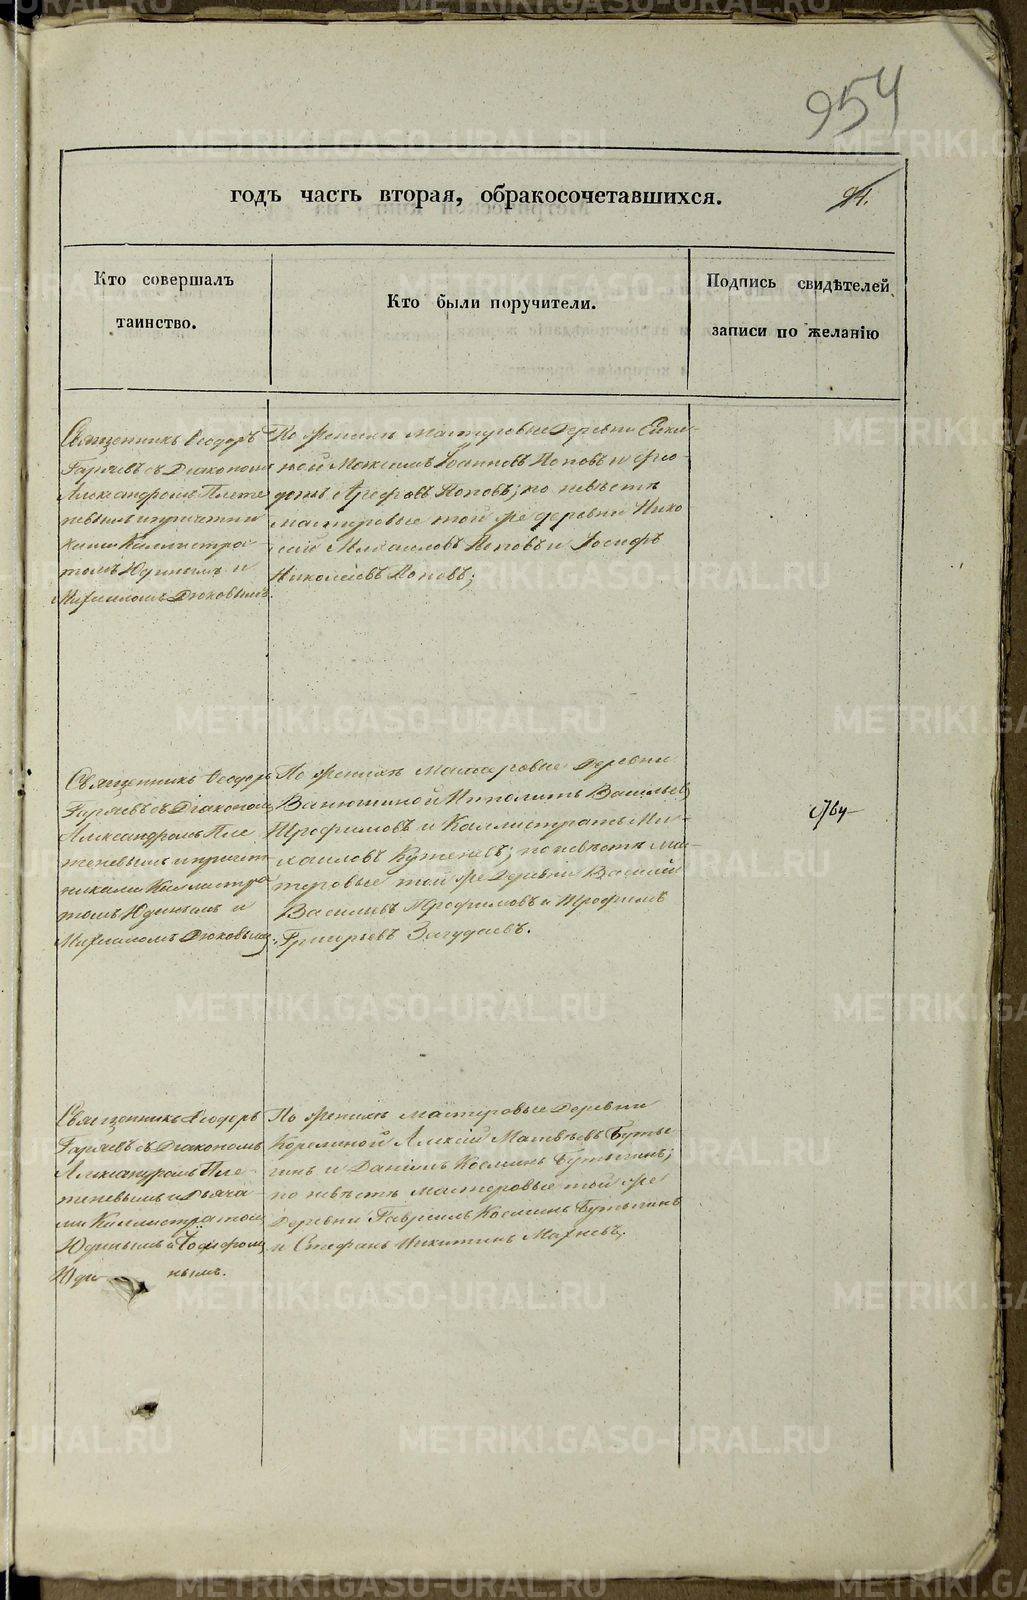 954
годъ часть вторая, обракосочетавшихся.
Кто совершалъ
таинство.
Кто были поручители.
Подпись свидѣтелей
записи по желанію
Священникъ Ѳеодоръ
Гаряевъ съ Діакономъ
Александромъ Плете
невымъ и причетни
ками Каллистра
томъ Юдинымъ и
Михаиломъ Дюковымъ
По женихѣ мастеровые деревни
ной Максимъ Іоанновъ Поповъ и
Арефовъ Поповъ; по невѣстѣ
мастеровые той же деревни Нико
лай Михаиловъ Поповъ и Іосифъ
Николаевъ Поповъ;
Священникъ Ѳеодоръ
Гаряевъ съ Діакономъ
Александромъ Пле
теневымъ и причет
никами Каллистра
томъ Юдинымъ и
Михаиломъ Дюковымъ;
По женихѣ мастеровые деревни
Ванюшиной Ипполитъ Васильевъ
Трофимовъ и Каллистратъ Ми-
хаиловъ; по невѣстѣ мас-
теровые той же деревни Василій
Васильевъ Трофимовъ и Трофимъ
Григорьевъ.
Священникъ Ѳеодоръ
Гаряевъ съ Діакономъ
Александромъ Пле-
теневымъ и Дьячка
ми Каллистратомъ
Юдинымъ и
Юди нымъ.
По женихѣ мастеровые деревни
Корелиной Алексѣй Матвѣевъ Буты
гинъ и Даніилъ Космынъ Бутыгинъ;
по невѣстѣ мастеровые той же
деревни Гавріилъ Космынъ Бутыгинъ
и Стефанъ Никитинъ Махневъ;
METRIKI.GASO-URAL.RU